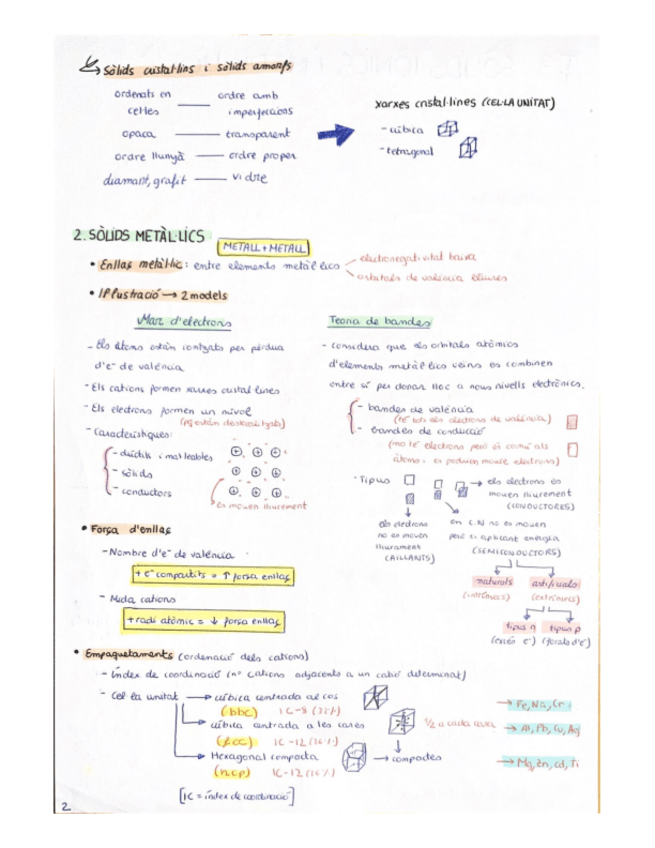 Sòlids cristal·lins i sòlids amorfs
ordenats en cel·les — ordre amb imperfeccions
opaca — transparent
ordre llunyà — ordre proper
diamant, grafit — vidre
xarxes cristal·lines (CEL·LA UNITAT)
- cúbica
- tetragonal
2. SÒLIDS METÀL·LICS
METALL + METALL
• Enllaç metàl·lic: entre elements metàl·lics
electronegativitat baixa
orbitals de valència lliures
• Il·lustració → 2 models
Mar d'electrons
- Els àtoms estàn ionitzats per pèrdua
d'e⁻ de valència
- Els cations formen xarxes cristal·lines
- Els electrons formen un núvol
(pq estàn deslocalitzats)
- Característiques:
- dúctils i mal·leables
- sòlids
- conductors
es mouen lliurement
Teoria de bandes
- considera que els orbitals atòmics
d'elements metàl·lics veïns es combinen
entre sí per donar lloc a nous nivells electrònics.
- bandes de valència
(té tots els electrons de valència)
- bandes de conducció
(no té electrons però és comú als
àtoms i es poden moure electrons)
- Tipus
→ els electrons es
mouen lliurement
(CONDUCTORES)
els electrons
no es mouen
lliurament
(AILLANTS)
en C.N no es mouen
però si aplicant energia
(SEMICONDUCTORS)
naturals
(intrínsecs)
artificials
(extrínsecs)
tipus n
(excés e⁻)
tipus p
(forats d'e⁻)
• Força d'enllaç
- Nombre d'e⁻ de valència
+ e⁻ compartits = ↑ força enllaç
- Mida cations
+ radi atòmic = ↓ força enllaç
• Empaquetaments (ordenació dels cations)
- índex de coordinació (nº cations adjacents a un catió determinat)
- Cel·la unitat → cúbica centrada al cos
(bbc) IC-8
→ Fe, Na, Cr
cúbica centrada a les cares
1/2 a cada cara
→ Al, Pb, Cu, Ag
(fcc) IC-12
Hexagonal compacta
→ compactes
→ Mg, Zn, Cd, Ti
(hcp) IC-12
[IC = índex de coordinació]
2